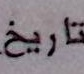 تاريخ